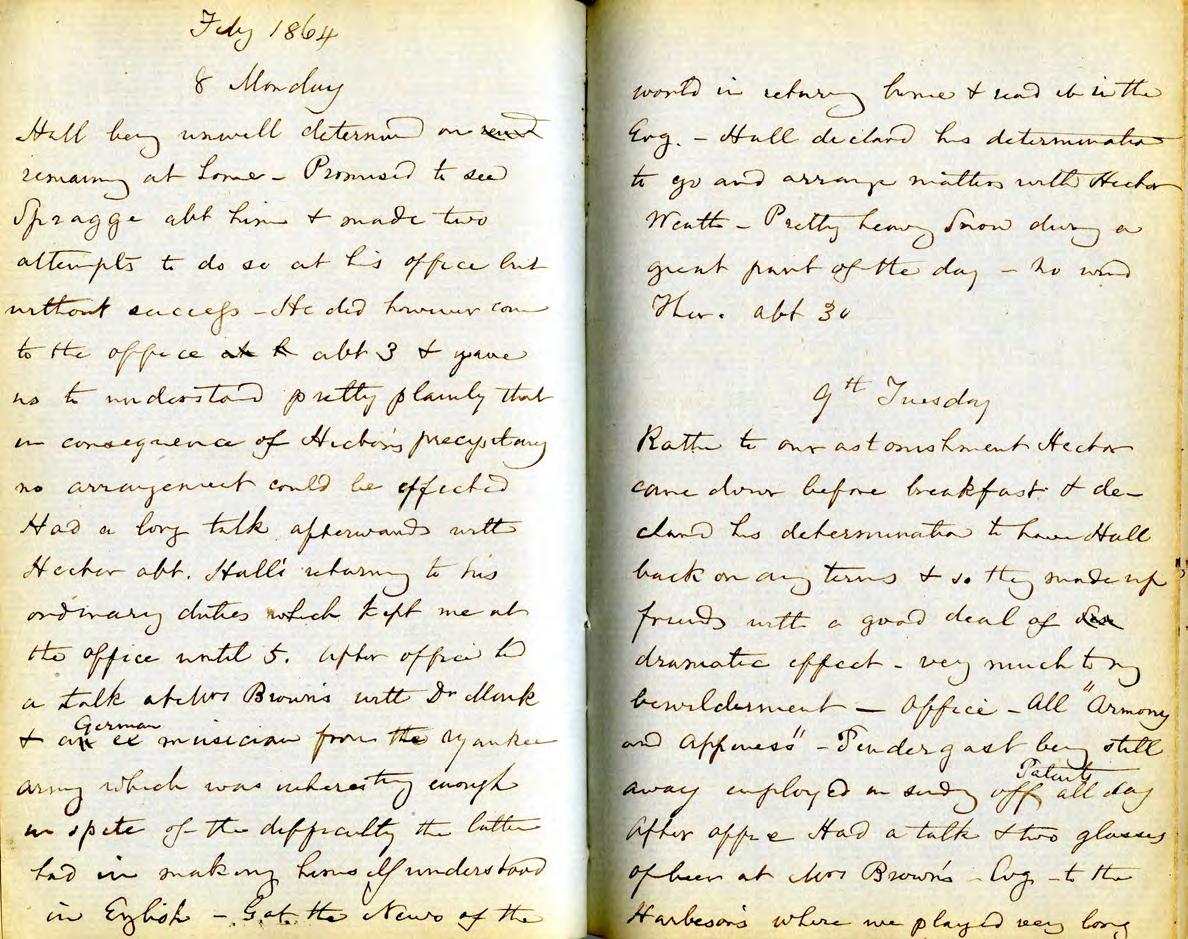 Feby 1864
8 Monday
Hall being unwell determined on remd
remaining at home - Promised to see
Spragge abt him & made two
attempts to do so at his office but
without success - He did however come
to the office at h abt 3 & gave
us to understand pretty plainly that
in consequence of Hector's precipitancy
no arrangement could be effected
Had a long talk afterwards with
Hector abt. Hall's returning to his
ordinary duties which kept me at
the office until 5. After office had
a talk at Mrs Brown's with Dr Monk
German
& an ex musician from the Yankee
army which was interesting enough
in spite of the difficulty the latter
had in making himself understood
in English - Got the News of the
world in returning home & read it in the
Evg. - Hall declared his determination
to go and arrange matters with Hector
Weath - Pretty heavy Snow during a
great part of the day - no wind
Ther. abt 30
9th Tuesday
Rather to our astonishment Hector
came down before breakfast & de-
clared his determination to have Hall
back on any terms & so they made up
friends with a good deal of
dramatic effect - very much to my
bewilderment - Office - All "Armony
and Appiness" - Pendergast being still
Patents
away employed in sendg off all day
After office Had a talk & two glasses
of beer at Mrs Brown's - Evg - to the
Harbeson's where we played very long